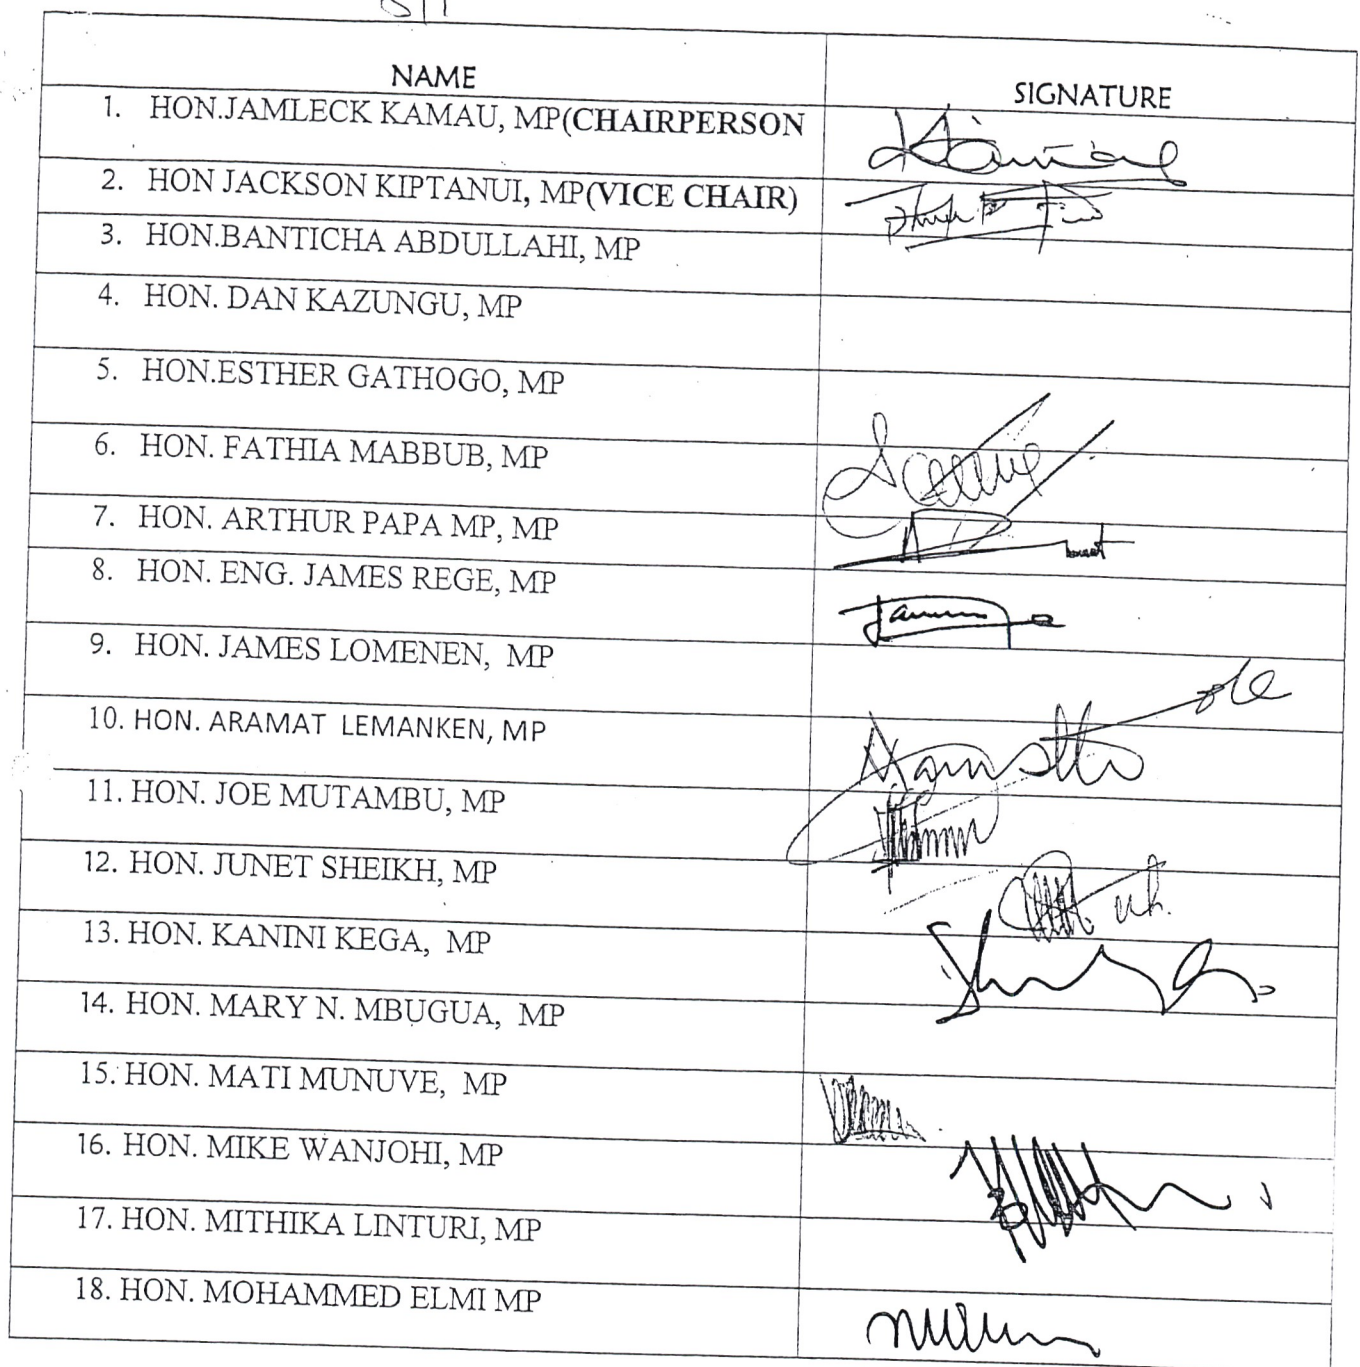 NAME
SIGNATURE
1. HON.JAMLECK KAMAU, MP(CHAIRPERSON
2. HON JACKSON KIPTANUI, MP(VICE CHAIR)
3. HON.BANTICHA ABDULLAHI, MP
4. HON. DAN KAZUNGU, MP
5. HON.ESTHER GATHOGO, MP
6. HON. FATHIA MABBUB, MP
7. HON. ARTHUR PAPA MP, MP
8. HON. ENG. JAMES REGE, MP
9. HON. JAMES LOMENEN, MP
10. HON. ARAMAT LEMANKEN, MP
11. HON. JOE MUTAMBU, MP
12. HON. JUNET SHEIKH, MP
13. HON. KANINI KEGA, MP
14. HON. MARY N. MBUGUA, MP
15. HON. MATI MUNUVE, MP
16. HON. MIKE WANJOHI, MP
17. HON. MITHIKA LINTURI, MP
18. HON. MOHAMMED ELMI MP